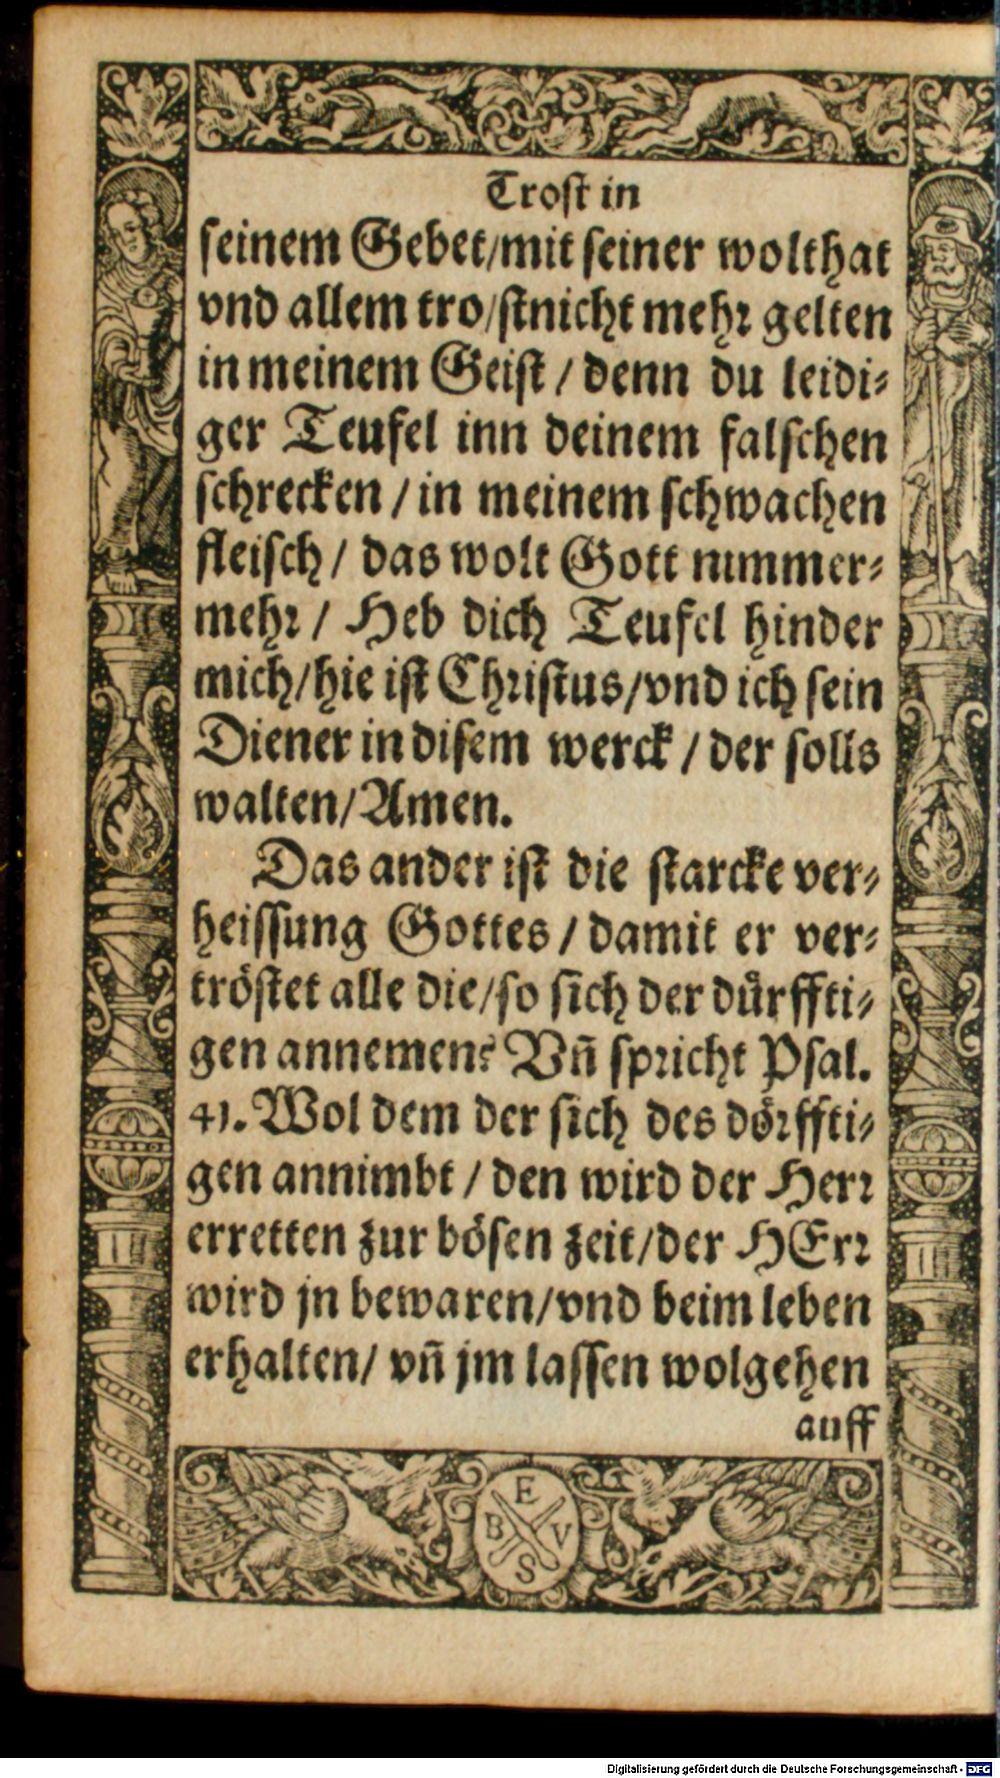 Trost in
seinem Gebet/mit seiner wolthat
vnd allem tro/stnicht mehr gelten
in meinem Geist / denn du leidi-
ger Teufel inn deinem falschen
schrecken / in meinem schwachen
fleisch / das wolt Gott nimmer-
mehr / Heb dich Teufel hinder
mich/hie ist Christus/vnd ich sein
Diener in disem werck / der solls
walten/Amen.
Das ander ist die starcke ver-
heissung Gottes / damit er ver-
tröstet alle die/so sich der důrffti-
gen annemen? Vñ spricht Psal.
41. Wol dem der sich des dörffti-
gen annimbt / den wird der Herr
erretten zur bösen zeit/der HErr
wird jn bewaren/vnd beim leben
erhalten/ vñ jm lassen wolgehen
auff
E
B V
S
Digitalisierung gefördert durch die Deutsche Forschungsgemeinschaft - DFG